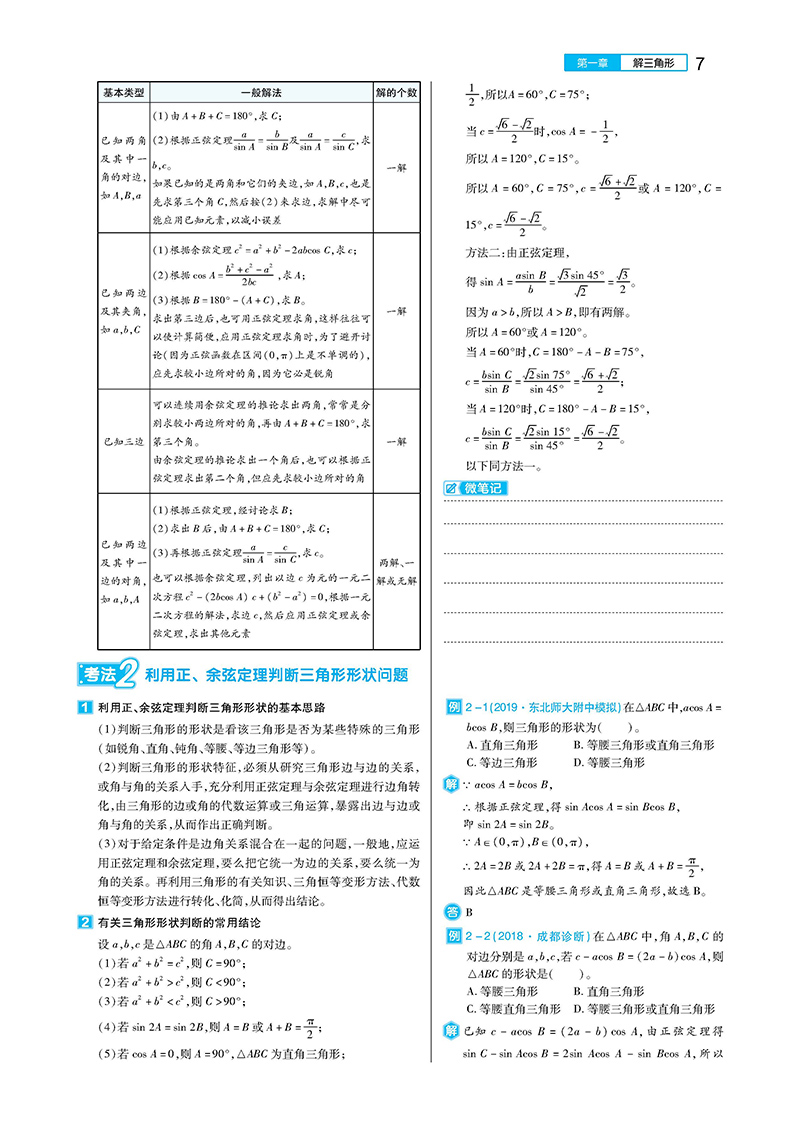 第一章 解三角形 7
基本类型 一般解法 解的个数
已知两角
及其中一
角的对边,
如 A,B,a
(1)由 A+B+C=180°,求 C;
(2)根据正弦定理 a/sin A = b/sin B 及 a/sin A = c/sin C,求
b,c。
如果已知的是两角和它们的夹边,如 A,B,c,也是
先求第三个角 C,然后按(2)来求边,求解中尽可
能应用已知元素,以减小误差
一解
已知两边
及其夹角,
如 a,b,C
(1)根据余弦定理 c²=a²+b²-2abcos C,求 c;
(2)根据 cos A=(b²+c²-a²)/2bc,求 A;
(3)根据 B=180°-(A+C),求 B。
求出第三边后,也可用正弦定理求角,这样往往可
以使计算简便,应用正弦定理求角时,为了避开讨
论(因为正弦函数在区间(0,π)上是不单调的),
应先求较小边所对的角,因为它必是锐角
一解
已知三边
可以连续用余弦定理的推论求出两角,常常是分
别求较小两边所对的角,再由 A+B+C=180°,求
第三个角。
由余弦定理的推论求出一个角后,也可以根据正
弦定理求出第二个角,但应先求较小边所对的角
一解
已知两边
及其中一
边的对角,
如 a,b,A
(1)根据正弦定理,经讨论求 B;
(2)求出 B 后,由 A+B+C=180°,求 C;
(3)再根据正弦定理 a/sin A = c/sin C,求 c。
也可以根据余弦定理,列出以边 c 为元的一元二
次方程 c²-(2bcos A) c+(b²-a²)=0,根据一元
二次方程的解法,求边 c,然后应用正弦定理或余
弦定理,求出其他元素
两解、一
解或无解
考法2 利用正、余弦定理判断三角形形状问题
1 利用正、余弦定理判断三角形形状的基本思路
(1)判断三角形的形状是看该三角形是否为某些特殊的三角形
(如锐角、直角、钝角、等腰、等边三角形等)。
(2)判断三角形的形状特征,必须从研究三角形边与边的关系,
或角与角的关系入手,充分利用正弦定理与余弦定理进行边角转
化,由三角形的边或角的代数运算或三角运算,暴露出边与边或
角与角的关系,从而作出正确判断。
(3)对于给定条件是边角关系混合在一起的问题,一般地,应运
用正弦定理和余弦定理,要么把它统一为边的关系,要么统一为
角的关系。再利用三角形的有关知识、三角恒等变形方法、代数
恒等变形方法进行转化、化简,从而得出结论。
2 有关三角形形状判断的常用结论
设 a,b,c 是△ABC 的角 A,B,C 的对边。
(1)若 a²+b²=c²,则 C=90°;
(2)若 a²+b²>c²,则 C<90°;
(3)若 a²+b²<c²,则 C>90°;
(4)若 sin 2A=sin 2B,则 A=B 或 A+B=π/2;
(5)若 cos A=0,则 A=90°,△ABC 为直角三角形;
1/2,所以A=60°,C=75°;
当 c=(√6-√2)/2 时,cos A=-1/2,
所以 A=120°,C=15°。
所以 A=60°,C=75°,c=(√6+√2)/2 或 A=120°,C=
15°,c=(√6-√2)/2。
方法二:由正弦定理,
得 sin A=asin B/b=√3sin 45°/√2=√3/2。
因为 a>b,所以 A>B,即有两解。
所以 A=60°或 A=120°。
当 A=60°时,C=180°-A-B=75°,
c=bsin C/sin B=√2sin 75°/sin 45°=(√6+√2)/2;
当 A=120°时,C=180°-A-B=15°,
c=bsin C/sin B=√2sin 15°/sin 45°=(√6-√2)/2。
以下同方法一。
微笔记
例 2-1(2019·东北师大附中模拟)在△ABC 中,acos A=
bcos B,则三角形的形状为( )。
A. 直角三角形 B. 等腰三角形或直角三角形
C. 等边三角形 D. 等腰三角形
解 ∵ acos A=bcos B,
∴ 根据正弦定理,得 sin Acos A=sin Bcos B,
即 sin 2A=sin 2B。
∵ A∈(0,π),B∈(0,π),
∴ 2A=2B 或 2A+2B=π,得 A=B 或 A+B=π/2,
因此△ABC 是等腰三角形或直角三角形,故选 B。
答 B
例 2-2(2018·成都诊断)在△ABC 中,角 A,B,C 的
对边分别是 a,b,c,若 c-acos B=(2a-b)cos A,则
△ABC 的形状是( )。
A. 等腰三角形 B. 直角三角形
C. 等腰直角三角形 D. 等腰三角形或直角三角形
解 已知 c-acos B=(2a-b)cos A,由正弦定理得
sin C-sin Acos B=2sin Acos A-sin Bcos A,所以